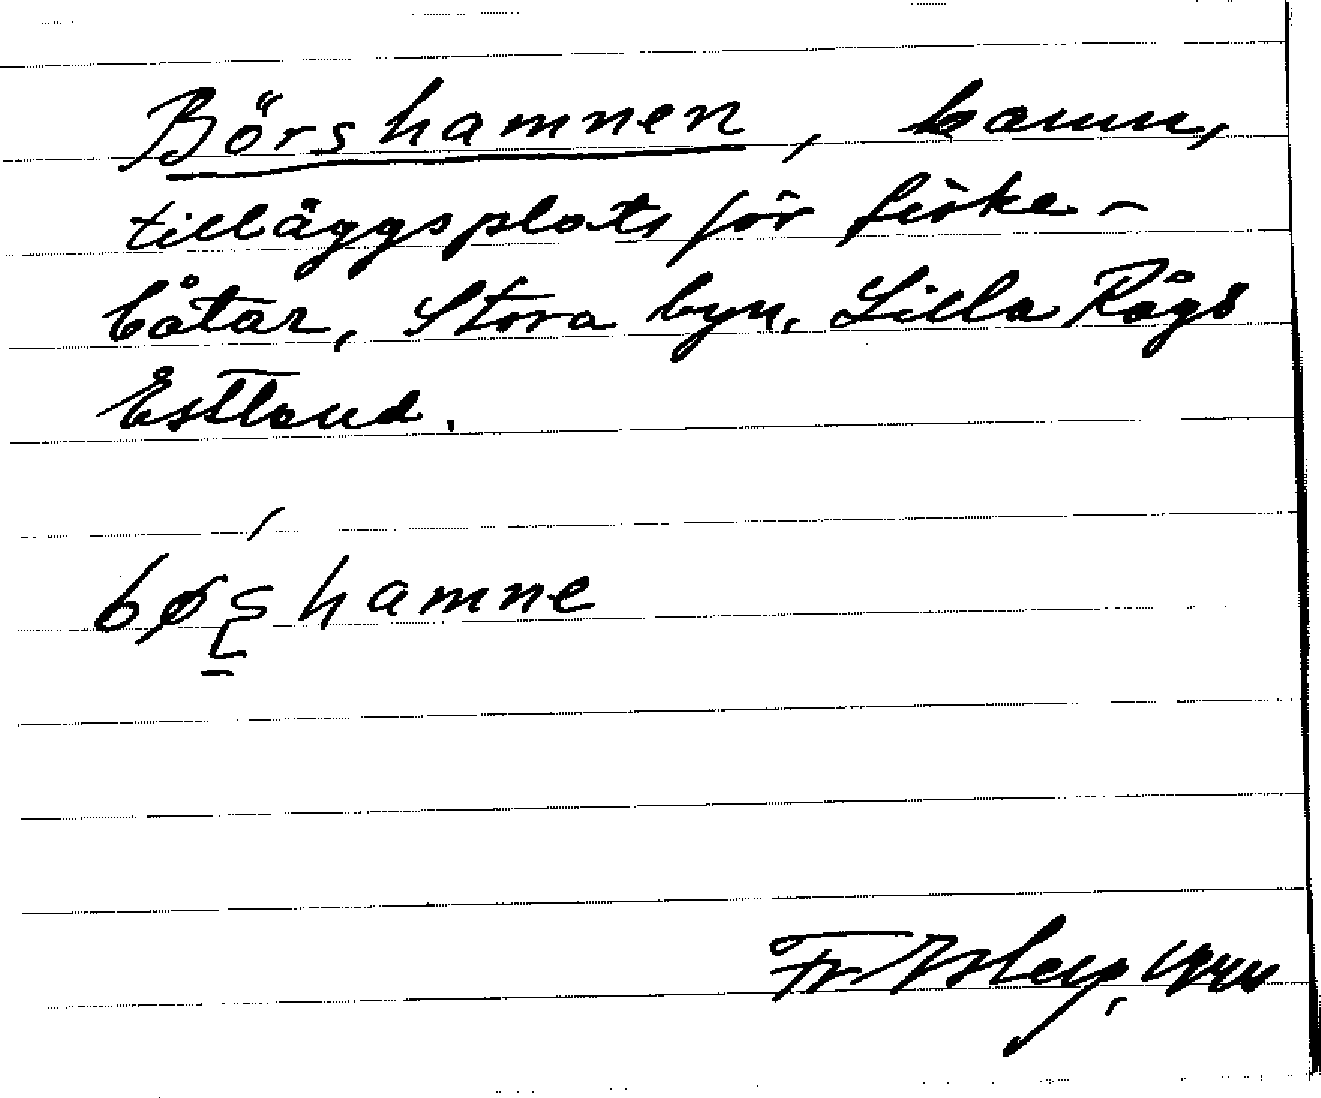 Börshamnen, hamn,
tilläggsplats för fiske-
båtar, Stora byn. Lilla Rågö
Estland.
bøʂhamne
Fr. Isberg,